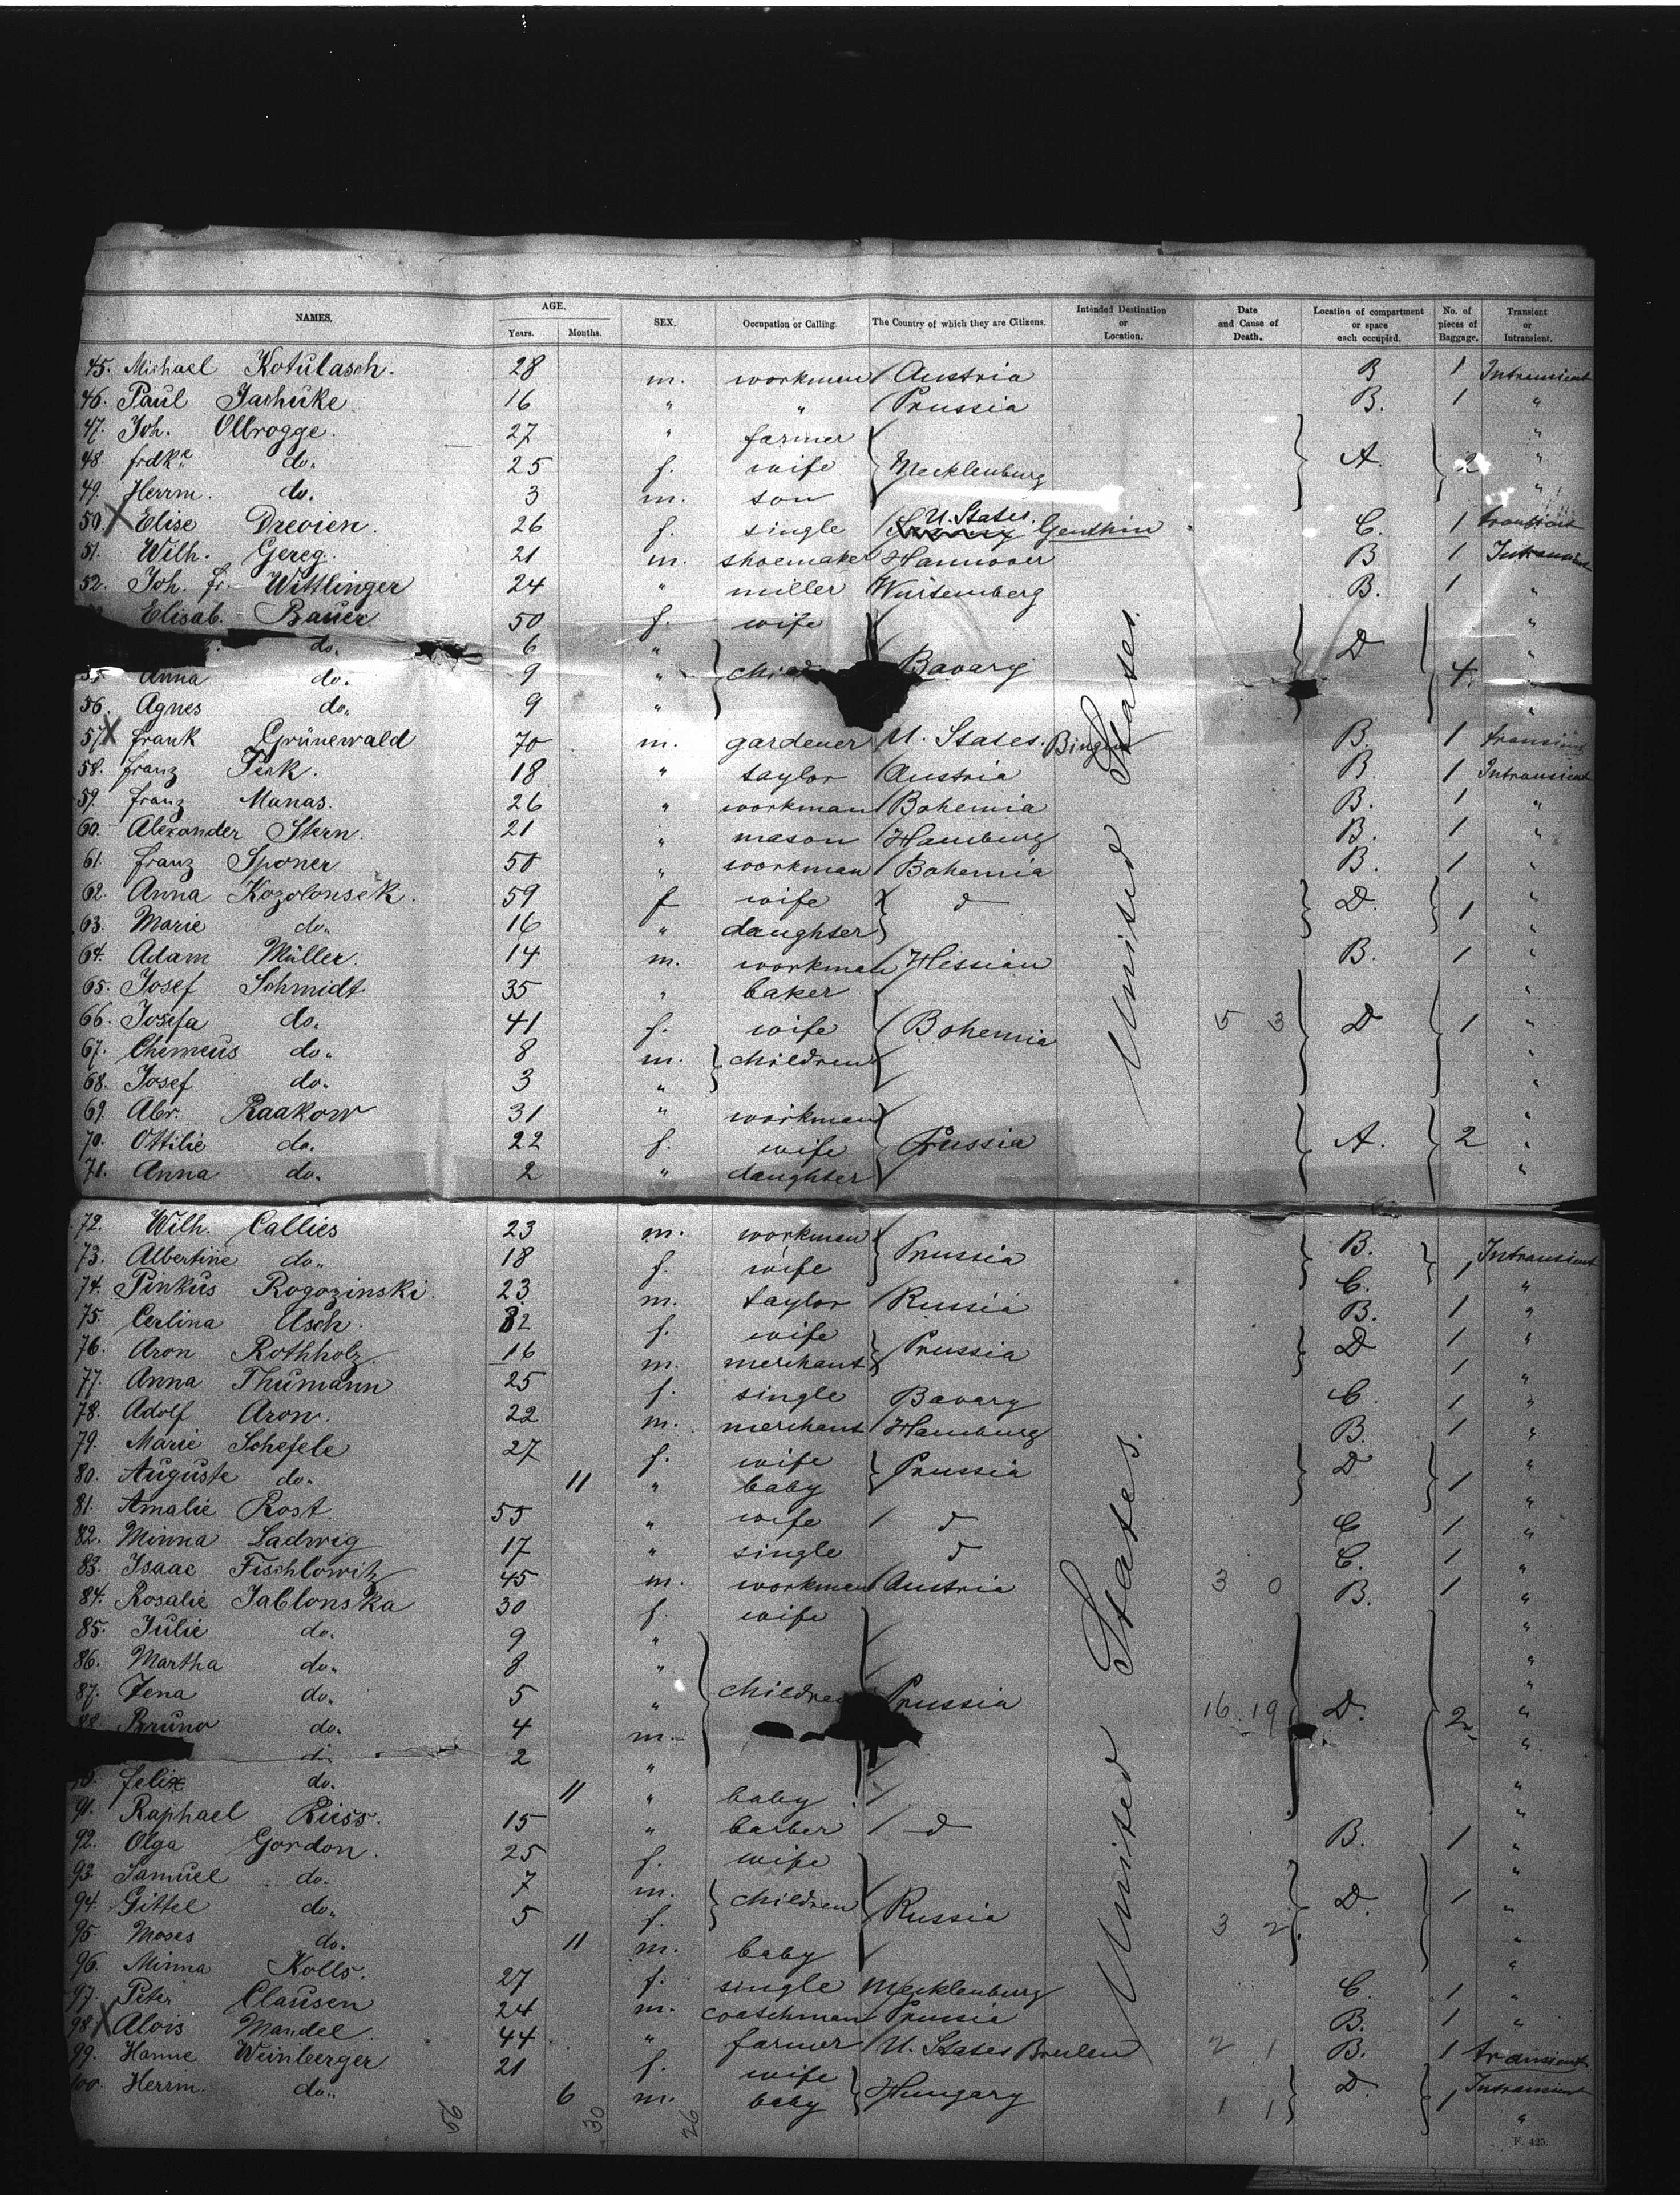 NAMES. AGE. Years. Months. SEX. Occupation or Calling. The Country of which they are Citizens. Intended Destination or Location. Date and Cause of Death. Location of compartment or space each occupied. No. of pieces of Baggage. Transient or Intransient.
45. Michael Kotulasch. 28 m. workman Austria B 1 Intransient
46. Paul Jashuke 16 " " Prussia B. 1 "
47. Joh. Ollrogge. 27 " farmer "
48. Frdke. do. 25 f. wife Mecklenburg A. 2 "
49. Herrm. do. 3 m. son "
50. X Elise Drevien. 26 f. single U. States. Genthin C. 1 transient
51. Wilh. Gereg. 21 m. shoemaker Hannover B 1 Intransient
52. Joh. Fr. Wittlinger 24 " miller Würtemberg B. 1 "
Elisab. Bauer 50 f. wife "
do. 6 " D "
55. Anna do. 9 " Bavary 4. "
56. Agnes do. 9 " "
57. X Frank Grünewald 70 m. gardener U. States. Bingen B. 1 transient
58. Franz Pisk. 18 " taylor Austria B. 1 Intransient
59. Franz Manas. 26 " workman Bohemia B. 1 "
60. Alexander Stern. 21 " mason Hamburg B. 1 "
61. Franz Sponer 50 " workman Bohemia B. 1 "
62. Anna Kozolonsek. 59 f wife d D. 1 "
63. Marie do. 16 " daughter "
64. Adam Müller. 14 m. workman Hessian B. 1 "
65. Josef Schmidt 35 " baker "
66. Josefa do. 41 f. wife Bohemia 5 3 D 1 "
67. Chemeus do. 8 m. children "
68. Josef do. 3 " "
69. Abr. Raakow 31 " workman "
70. Ottilie do. 22 f. wife Prussia A. 2 "
71. Anna do. 2 " daughter "
United States.
72. Wilh. Callies 23 m. workman Prussia B. 1 Intransient
73. Albertine do. 18 f. wife "
74. Pinkus Rogozinski. 23 m. taylor Russia C. B. 1 "
75. Cerlina Asch. 32 f. wife Prussia D 1 "
76. Aron Rothholz. 16 m. merchant 1 "
77. Anna Thümann 25 f. single Bavary C. 1 "
78. Adolf Aron. 22 m. merchant Hamburg B. 1 "
79. Marie Schefele 27 f. wife Prussia D 1 "
80. Auguste do. 11 " baby "
81. Amalie Rost. 55 " wife d C 1 "
82. Minna Ladwig 17 " single d C. 1 "
83. Isaac Fischlowitz 45 m. workman Austria 3 0 B. 1 "
84. Rosalie Jablonska 30 f. wife "
85. Julie do. 9 " "
86. Martha do. 8 " "
87. Jena do. 5 " children Prussia 16. 19 D. 2 "
88. Bruno do. 4 m. "
do. 2 "
Felix do. 11 " baby "
91. Raphael Riess. 15 " barber d B. 1 "
92. Olga Gordon. 25 f. wife "
93. Samuel do. 7 m. children Russia D. 1 "
94. Gittel do. 5 f. 3 2 "
95. Moses do. 11 m. baby "
96. Minna Kolls. 27 f. single Mecklenburg C. 1 "
97. Peter Clausen 24 m. coatchman Prussia B. 1 "
98. X Alois Mandel. 44 " farmer U. States 2 1 B. 1 transient
99. Hanne Weinberger 21 f. wife Hungary D. 1 Intransient
100. Herrm. do. 6 m. baby 1 1 "
United States.
56 30 26
F. 425.